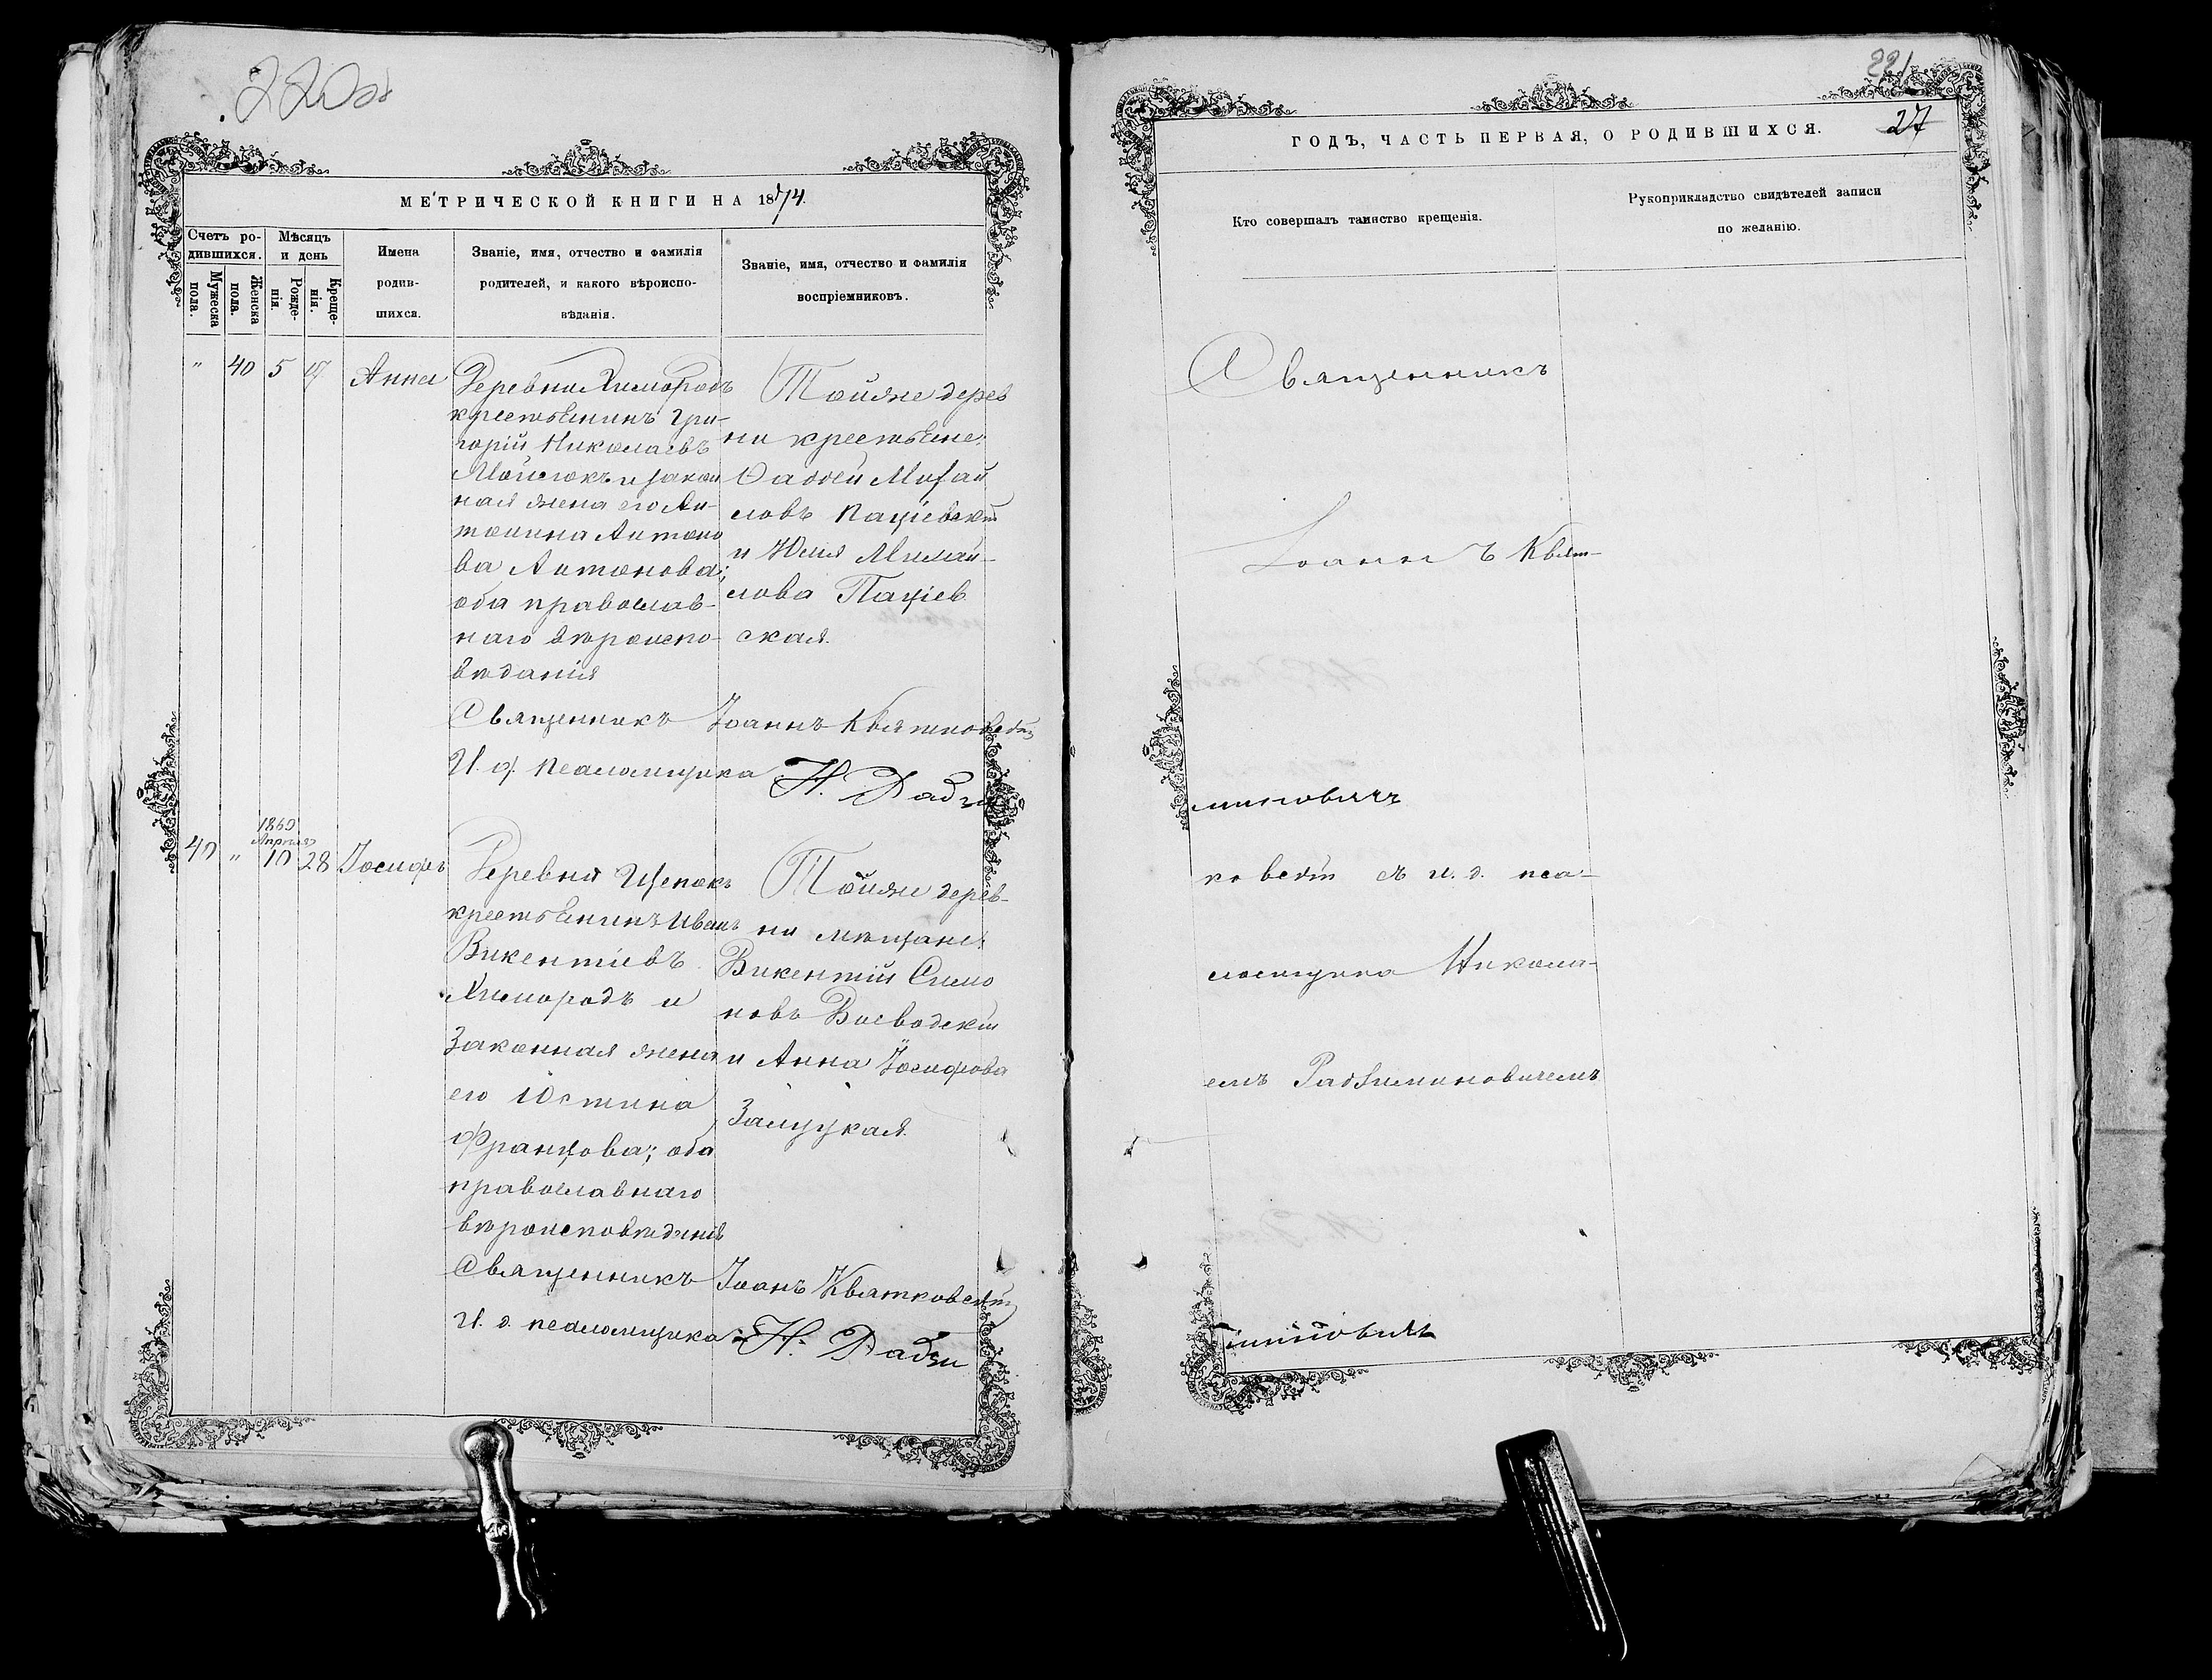 220об
МЕТРИЧЕСКОЙ КНИГИ НА 1874.
Счетъ ро-
дившихся.
Мѣсяцъ
и день
Мужеска
пола.
Женска
пола.
Рожде-
нія.
Креще-
нія.
Имена
родив-
шихся.
Званіе, имя, отчество и фамилія
родителей, и какого вѣроиспо-
вѣданія.
Званіе, имя, отчество и фамилія
воспріемниковъ.
" 40 5 17 Анна
Деревни Химородъ
крестьянинъ Гри-
горій Николаевъ
и закон
ная жена его Ан-
тонина Антоно
ва Антонова;
оба православ-
наго вѣроиспо-
вѣданія
Тойже дерев
ни крестьяне:
Фаддей Михай
ловъ Пацѣевскій
и Юлія Михай-
лова Пацѣев
ская.
Священникъ Іоаннъ Квятковскій
И. д. псаломщика Н. Радзи
40 " 1869 Апрѣля 10 28 Іосифъ
Деревни Щепокъ
крестьянинъ Иванъ
Викентіевъ
Химородъ и
законная жена
его Юстина
Францова; оба
православнаго
вѣроисповѣданія
Тойже дерев-
ни мѣщане
Викентій Симо
новъ Воеводскій
и Анна Іосифова
Залуцкая.
Священникъ Іоанъ Квятковскій
И. д. псаломщика Н. Радзи
221
27
ГОДЪ, ЧАСТЬ ПЕРВАЯ, О РОДИВШИХСЯ.
Кто совершалъ таинство крещенія.
Рукоприкладство свидѣтелей записи
по желанію.
Священникъ
Іоаннъ Квят-
миновичъ
ковскій съ и. д. пса-
ломщика Никола-
емъ Радзиминовичемъ
миновичъ